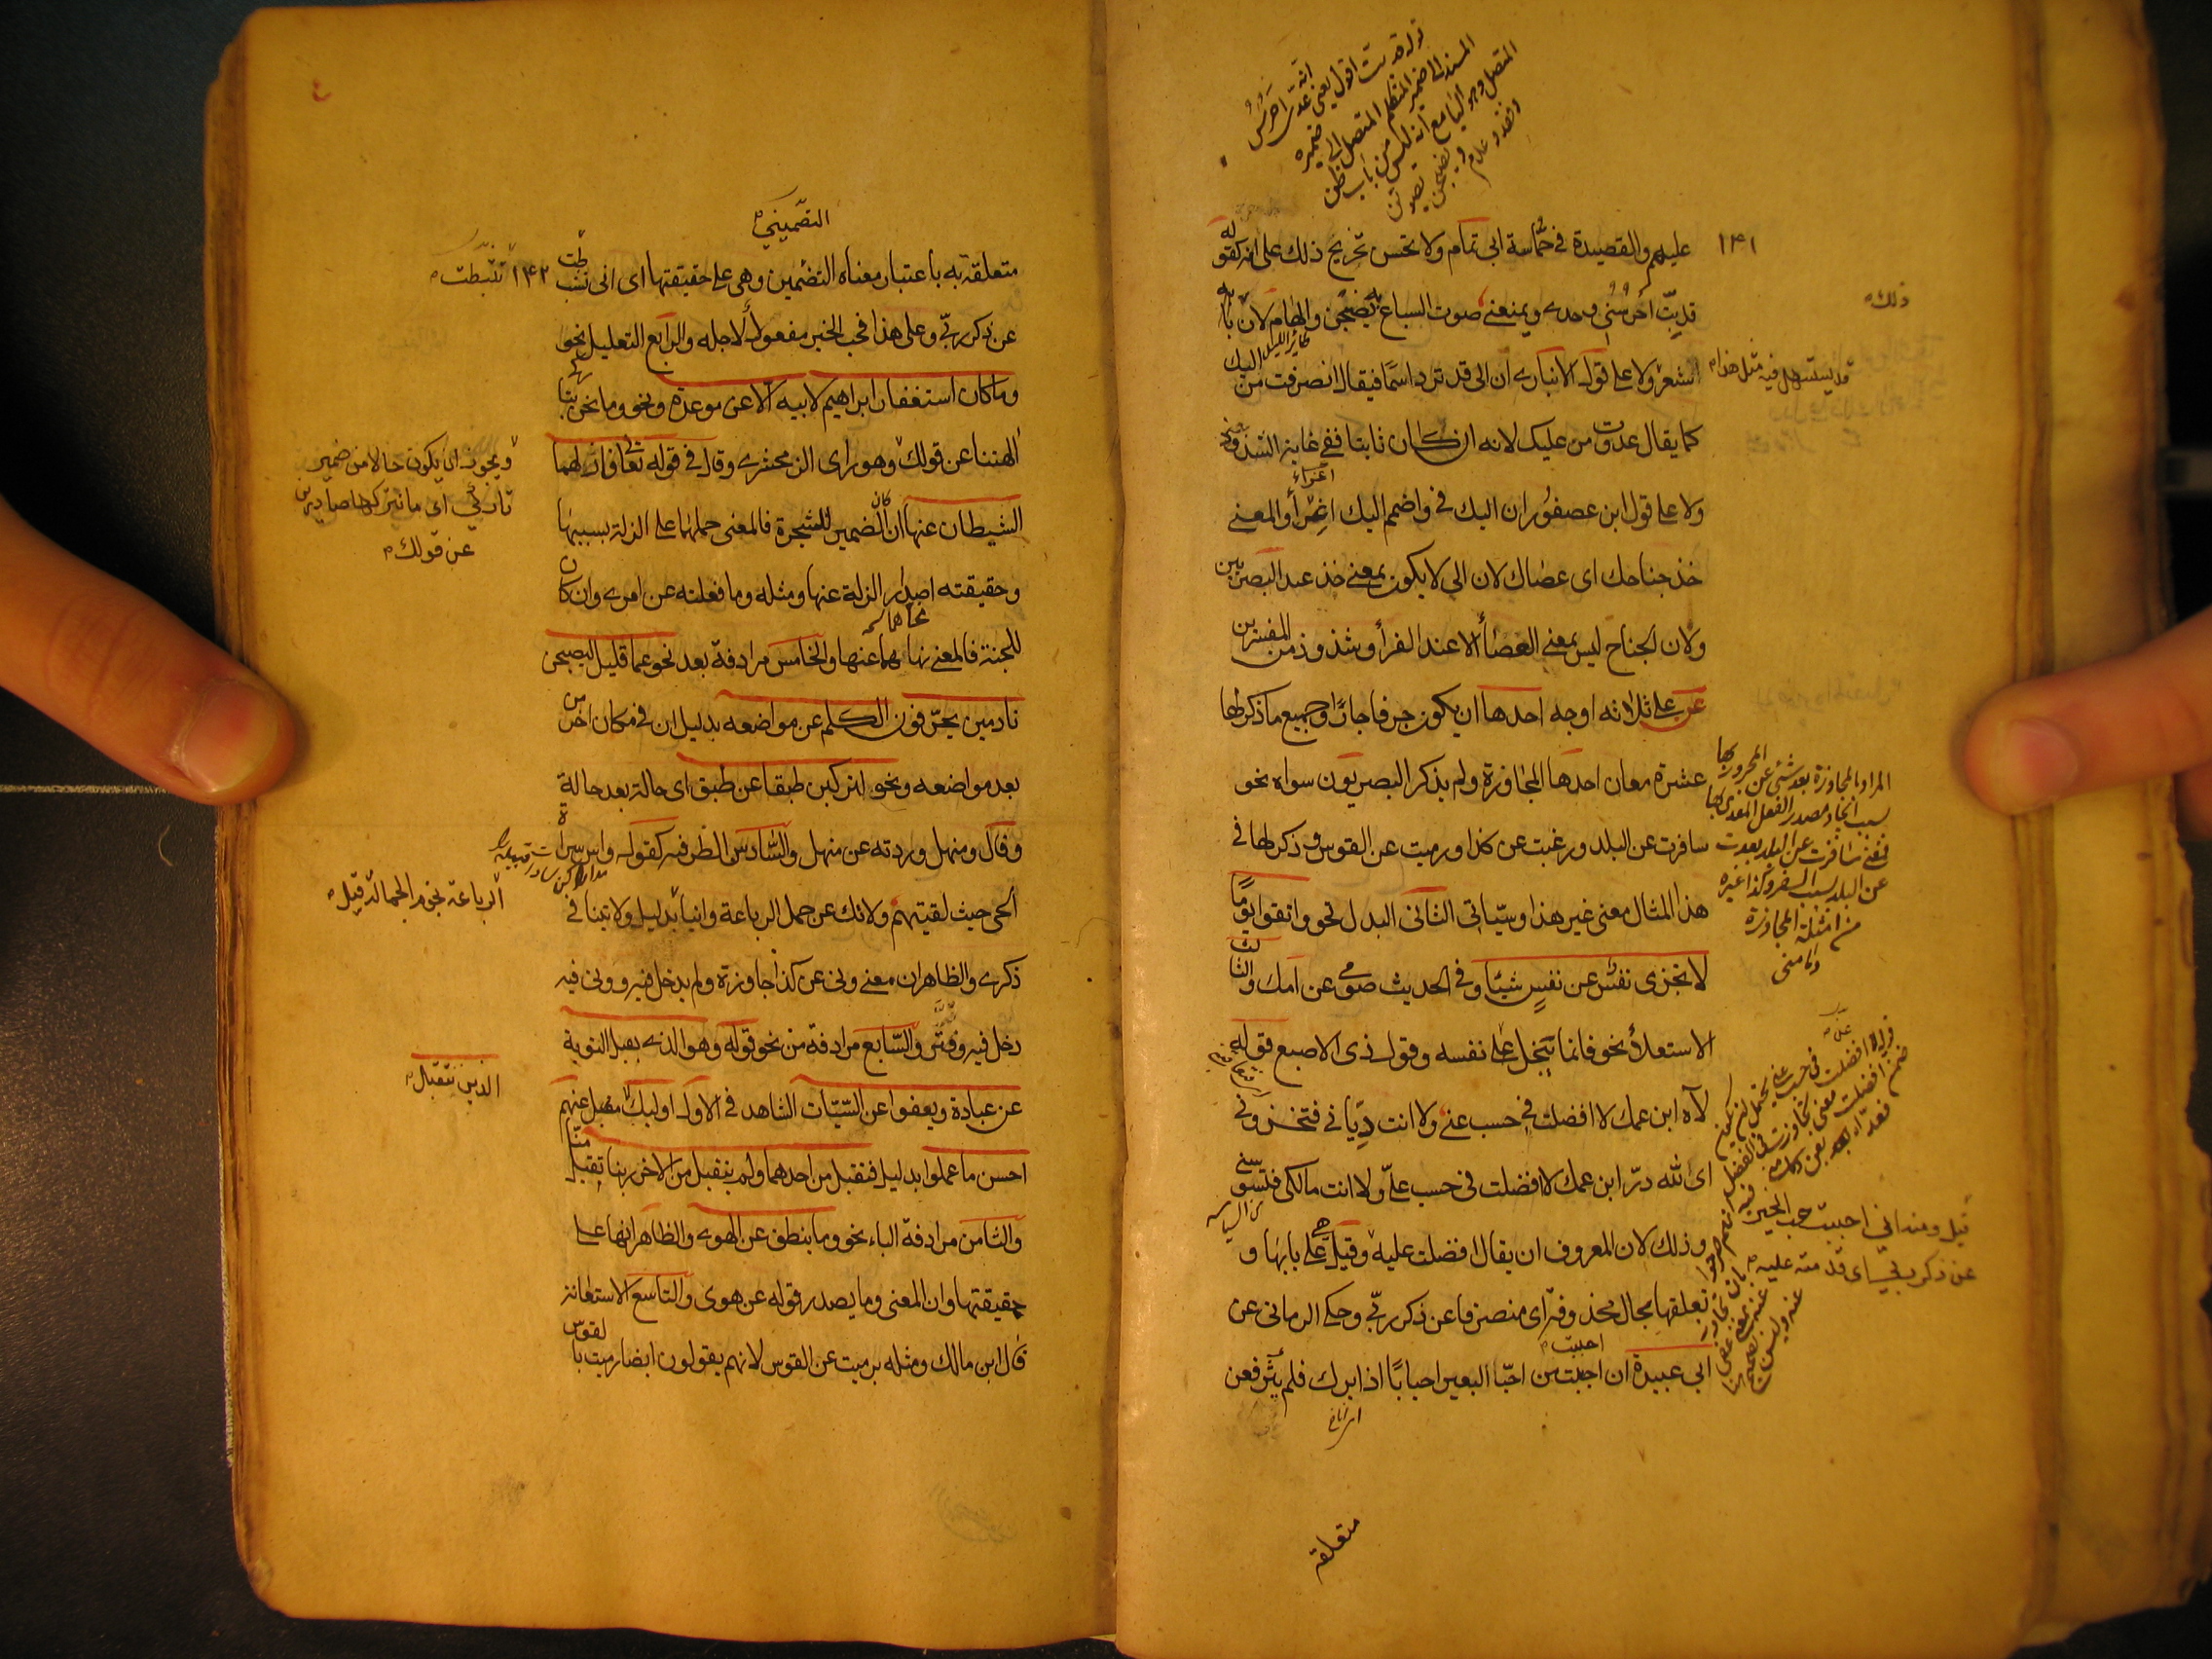 ١٤١
عليهم والقصيدة في حماسة ابي تمام ولا تحسن تخريج ذلك على انه كقوله
قد بت احرسني وحدي ويمنعني صوت السباع به يضبحن والهام لان بابه
الشعر ولا على قول الانباري ان الى قد ترد اسما فيقال انصرفت من اليك
كما يقال عدوت من عليك لانه ان كان ثابتا ففي غاية الشذوذ
ولا على قول ابن عصفور ان اليك في واضمم اليك اغراء والمعنى
خذ جناحك اى عصاك لان الى لا يكون بمعنى خذ عند البصريين
ولان الجناح ليس بمعنى العصا الا عند الفراء وشذوذ من المفسرين
عن على ثلاثة اوجه احدها ان يكون حرفا جارا وجميع ما ذكر لها
عشرة معان احدها المجاوزة ولم يذكر البصريون سواه نحو
سافرت عن البلد ورغبت عن كذا ورميت عن القوس وذكر لها في
هذا المثال معنى غير هذا وسياتي الثانى البدل نحو واتقوا يوما
لا تجزى نفس عن نفس شيئا وفي الحديث صومي عن امك والثالث
الاستعلاء نحو فانما يبخل على نفسه وقول ذى الاصبع قوله
لاه ابن عمك لا افضلت في حسب عني ولا انت دياني فتخزوني
اى لله در ابن عمك لا افضلت في حسب علي ولا انت مالكى فتسوسني
وذلك لان المعروف ان يقال افضلت عليه وقيل هي على بابها و
تعلقها بحال محذوفة اى منصرفا عن ذكر ربي وحكى الرماني عن
ابي عبيدة ان احببت من احب البعير احبابا اذا برك فلم يثر فعن
متعلقة
ذلك
قد يستسهل فيه مثل هذا
المراد بالمجاوزة بعد شئ عن المجرور بها
بسبب ايجاد مصدر الفعل المعدى بها
فمعنى سافرت عن البلد بعدت
عن البلد بسبب السفر وكذا غيره
من امثلة المجاوزة
قيل ومنه اني احببت حب الخير
عن ذكر ربي اى قدمته عليه
التضميني
متعلقة به باعتبار معناه التضمين وهى على حقيقتها اى انى تثبطت
١٤٢ تثبطت
عن ذكر ربي وعلى هذا فحب الخير مفعول لاجله والرابع التعليل نحو
وما كان استغفار ابراهيم لابيه الا عن موعدة ونحو وما نحن بتاركي
الهتنا عن قولك وهو راى الزمخشرى وقال في قوله تعالى فازلهما
الشيطان عنها ان كان الضمير للشجرة فالمعنى حملهما على الزلة بسببها
وحقيقته اصدار الزلة عنها ومثله وما فعلته عن امرى وان كان
للجنة فالمعنى نحاهما عنها والخامس مرادفة بعد نحو عما قليل ليصبحن
نادمين يحرفون الكلم عن مواضعه بدليل ان في مكان اخر من
بعد مواضعه ونحو لتركبن طبقا عن طبق اى حالة بعد حالة
وقال ومنهل وردته عن منهل والسادس الظرفية كقوله واس سراة
الحى حيث لقيتهم ولا تك عن حمل الرباعة وانيا بدليل ولا تنيا في
ذكرى والظاهر ان معنى ونى عن كذا جاوزة ولم يدخل فيه وونى فيه
دخل فيه وفتر والسابع مرادفة من نحو قوله وهو الذى يقبل التوبة
عن عبادة ويعفوا عن السيات الشاهد في الاولى اوليك تقبل عنهم
احسن ما عملوا بدليل فتقبل من احدهما ولم يتقبل من الاخر ربنا تقبل منا
والثامن مرادفة الباء نحو وما ينطق عن الهوى والظاهر انها على
حقيقتها وان المعنى وما يصدر قوله عن هوى والتاسع الاستعانة
قال ابن مالك ومثله برميت عن القوس لانهم يقولون ايضا رميت بالقوس
ويجوز ان يكون حالا من ضمير
تاركي اى ما نتركها صادرين
عن قولك
الرباعة نجوم الحمالة قيل
الذين نتقبل